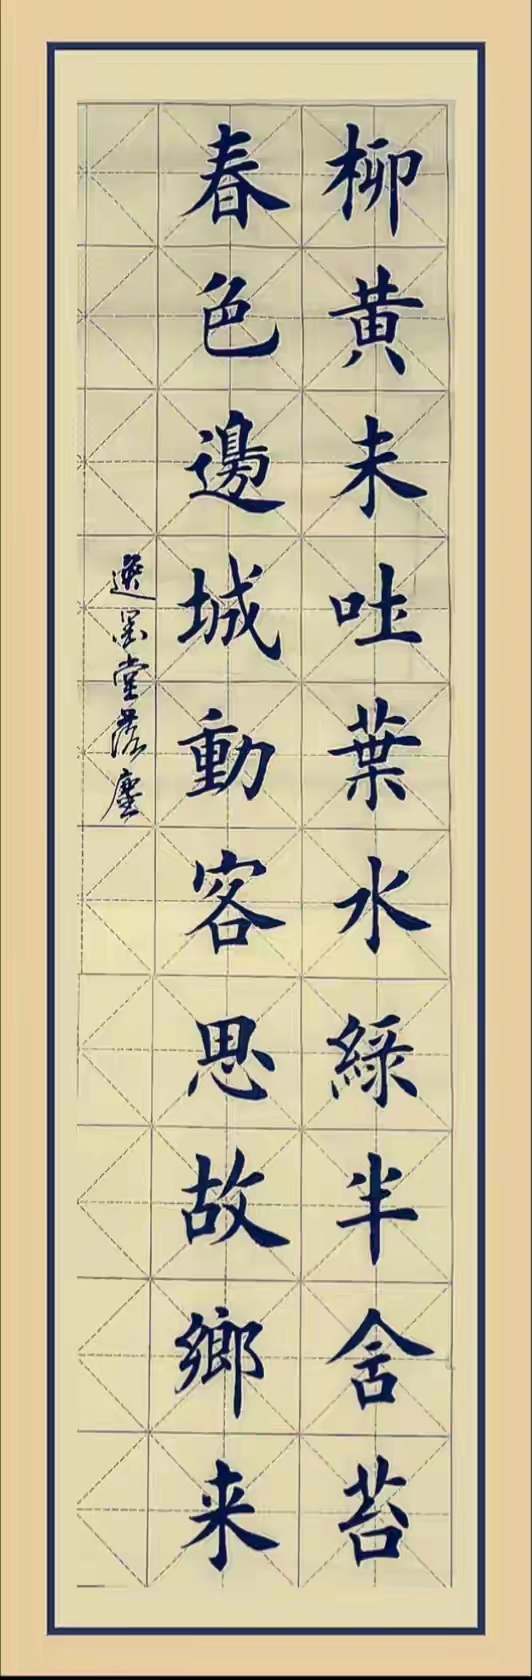 柳黄未吐葉水綠半含苔
春色邊城動客思故鄉来
墨堂落塵